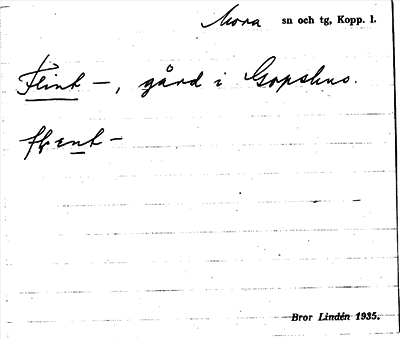 Mora sn och tg, Kopp. l.
Flint –, gård i Gopshus.
Bror Lindén 1935.